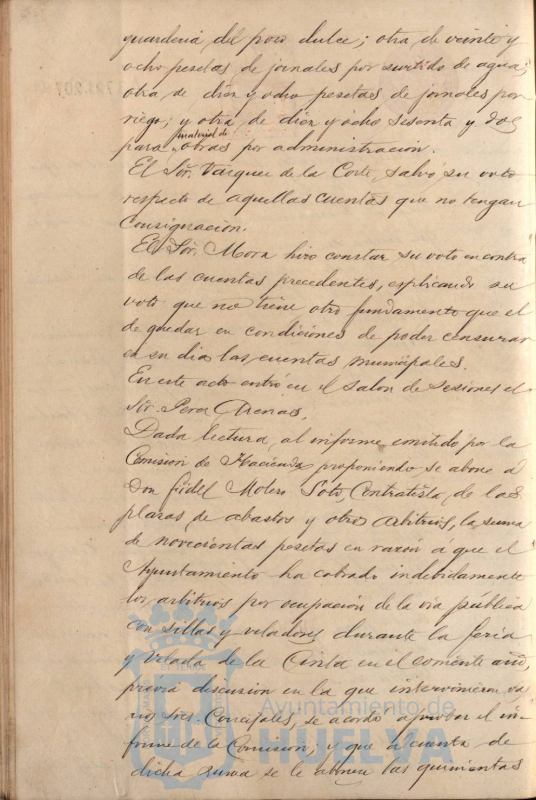 guarderia del poso dulce; otra de veinte y
ocho pesetas de jornales por surtido de agua;
otra de diez y ocho pesetas de jornales por
riego; y otra de diez y ocho sesenta y dos
material de
para obras por administracion.
El Sõr. Vazquez de la Corte, salvó su voto
respecto de aquellas cuentas que no tengan
Consignación.
El Sõr. Mora hizo constar su voto en contra
de las cuentas precedentes, esplicando su
voto que no tiene otro fundamento que el
de quedar en condiciones de poder censurar
en su dia las cuentas municipales.
En este acto entró en el salon de sesiones el
Sõr. Perez Arenas.
Dada lectura, al informe emitido por la
Comision de Hacienda proponiendo se abone á
Don Fidel Molero Soto, Contratista, de las
plazas de abastos y otros arbitrios, la suma
de novecientas pesetas en razon á que el
Ayuntamiento ha cobrado indebidamente
los arbitrios por ocupación de la via pública
con sillas y veladores, durante la feria
y Velada de la Cinta en el corriente año,
previa discusion en la que intervinieron va
rios Sres. Concejales, se acordó aprobar el in-
forme de la Comision; y que á cuenta de
dicha suma se le abonen las quinientas
Ayuntamiento de
HUELVA